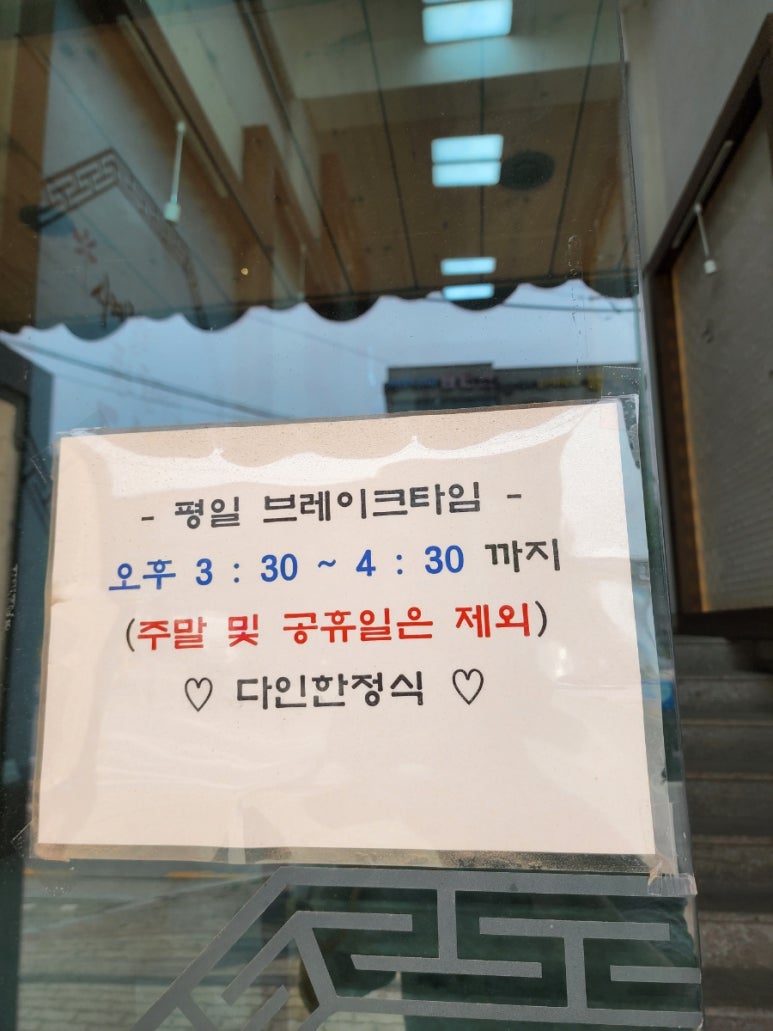 - 평일 브레이크타임 -
오후 3 : 30 ~ 4 : 30 까지
(주말 및 공휴일은 제외)
♡ 다인한정식 ♡